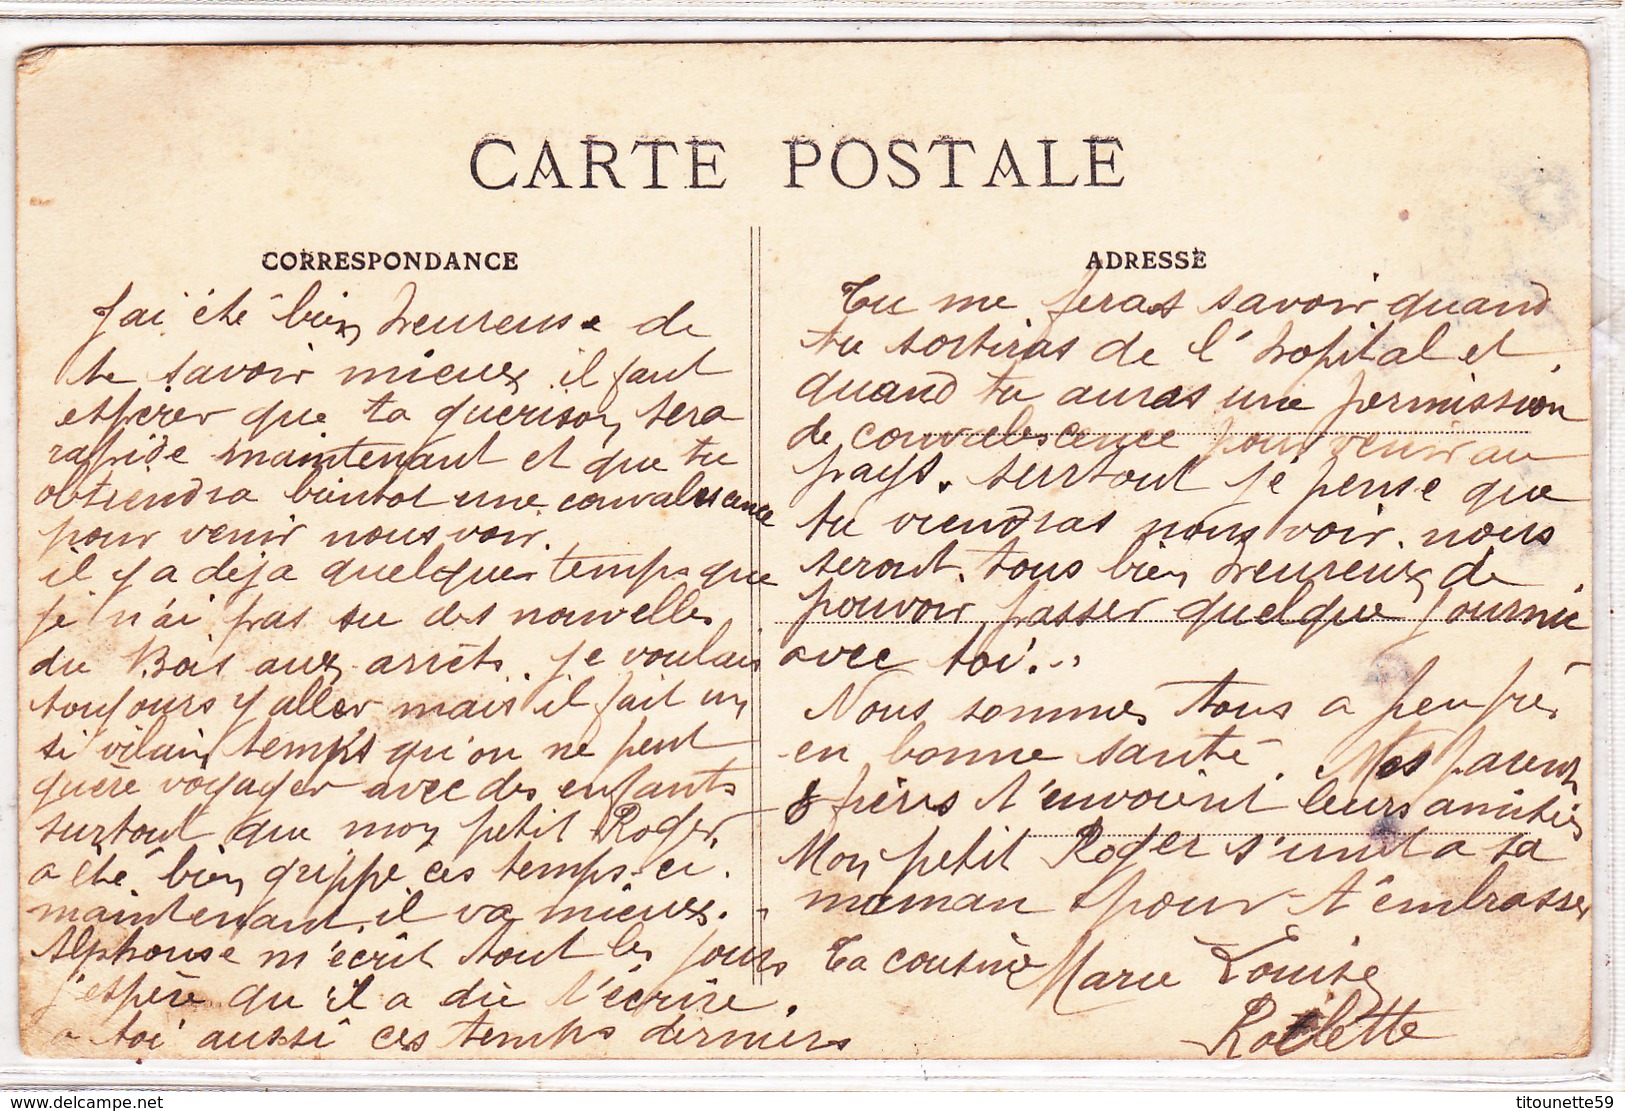 CARTE POSTALE
CORRESPONDANCE
J'ai été bien heureuse de
te savoir mieux il faut
espérer que ta guerison sera
rapide maintenant et que tu
obtiendra bientot une convalescence
pour venir nous voir.
il y a deja quelques temps que
je n'ai pas su des nouvelles
du Bois aux arrêts. je voulais
toujours y aller mais il fait un
si vilain temps qu'on ne peut
guère voyager avec des enfants
surtout que mon petit Roger
a été bien grippe ces temps-ci.
maintenant il va mieux.
Alphonse m'écrit tout les jours
j'espère qu'il a dû t'écrire
a toi aussi ces temps derniers
ADRESSE
Tu me feras savoir quand
tu sortiras de l'hopital et
quand tu auras une permission
de convalescence pour venir au
pays. surtout je pense que
tu viendras nous voir. nous
seront tous bien heureux de
pouvoir passer quelque journie
avec toi...
Nous sommes tous a peu prés
en bonne santé. Mes parents
& frères t'envoient leurs amitiés
Mon petit Roger s'unit a sa
maman pour t'embrasser
Ta cousine Marie Louise
delcampe.net
titounette59